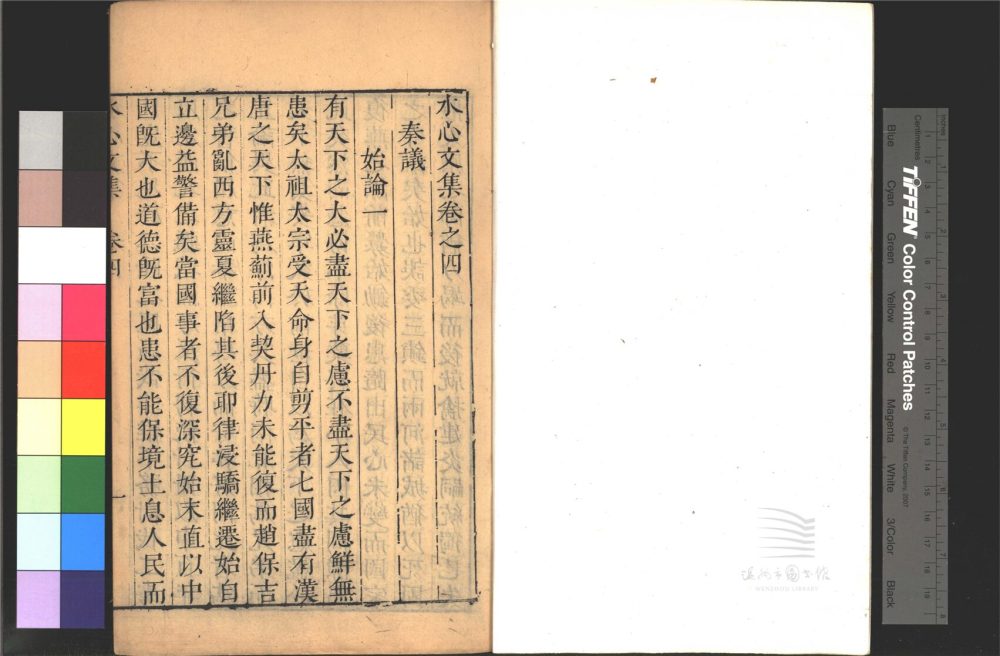 水心文集卷之四
奏議
始論一
有天下之大必盡天下之慮不盡天下之慮鮮無
患矣太祖太宗受天命身自剪平者七國盡有漢
唐之天下惟燕薊前入契丹力未能復而趙保吉
兄弟亂西方靈夏繼陷其後耶律浸驕繼遷始自
立邊益警備矣當國事者不復深究始末直以中
國旣大也道德旣富也患不能保境土息人民而
水心文集 卷四 一
溫州市圖書館
WENZHOU LIBRARY
TIFFEN Color Control Patches
© The Tiffen Company, 2007
Inches
Centimetres
Blue
Cyan
Green
Yellow
Red
Magenta
White
3/Color
Black